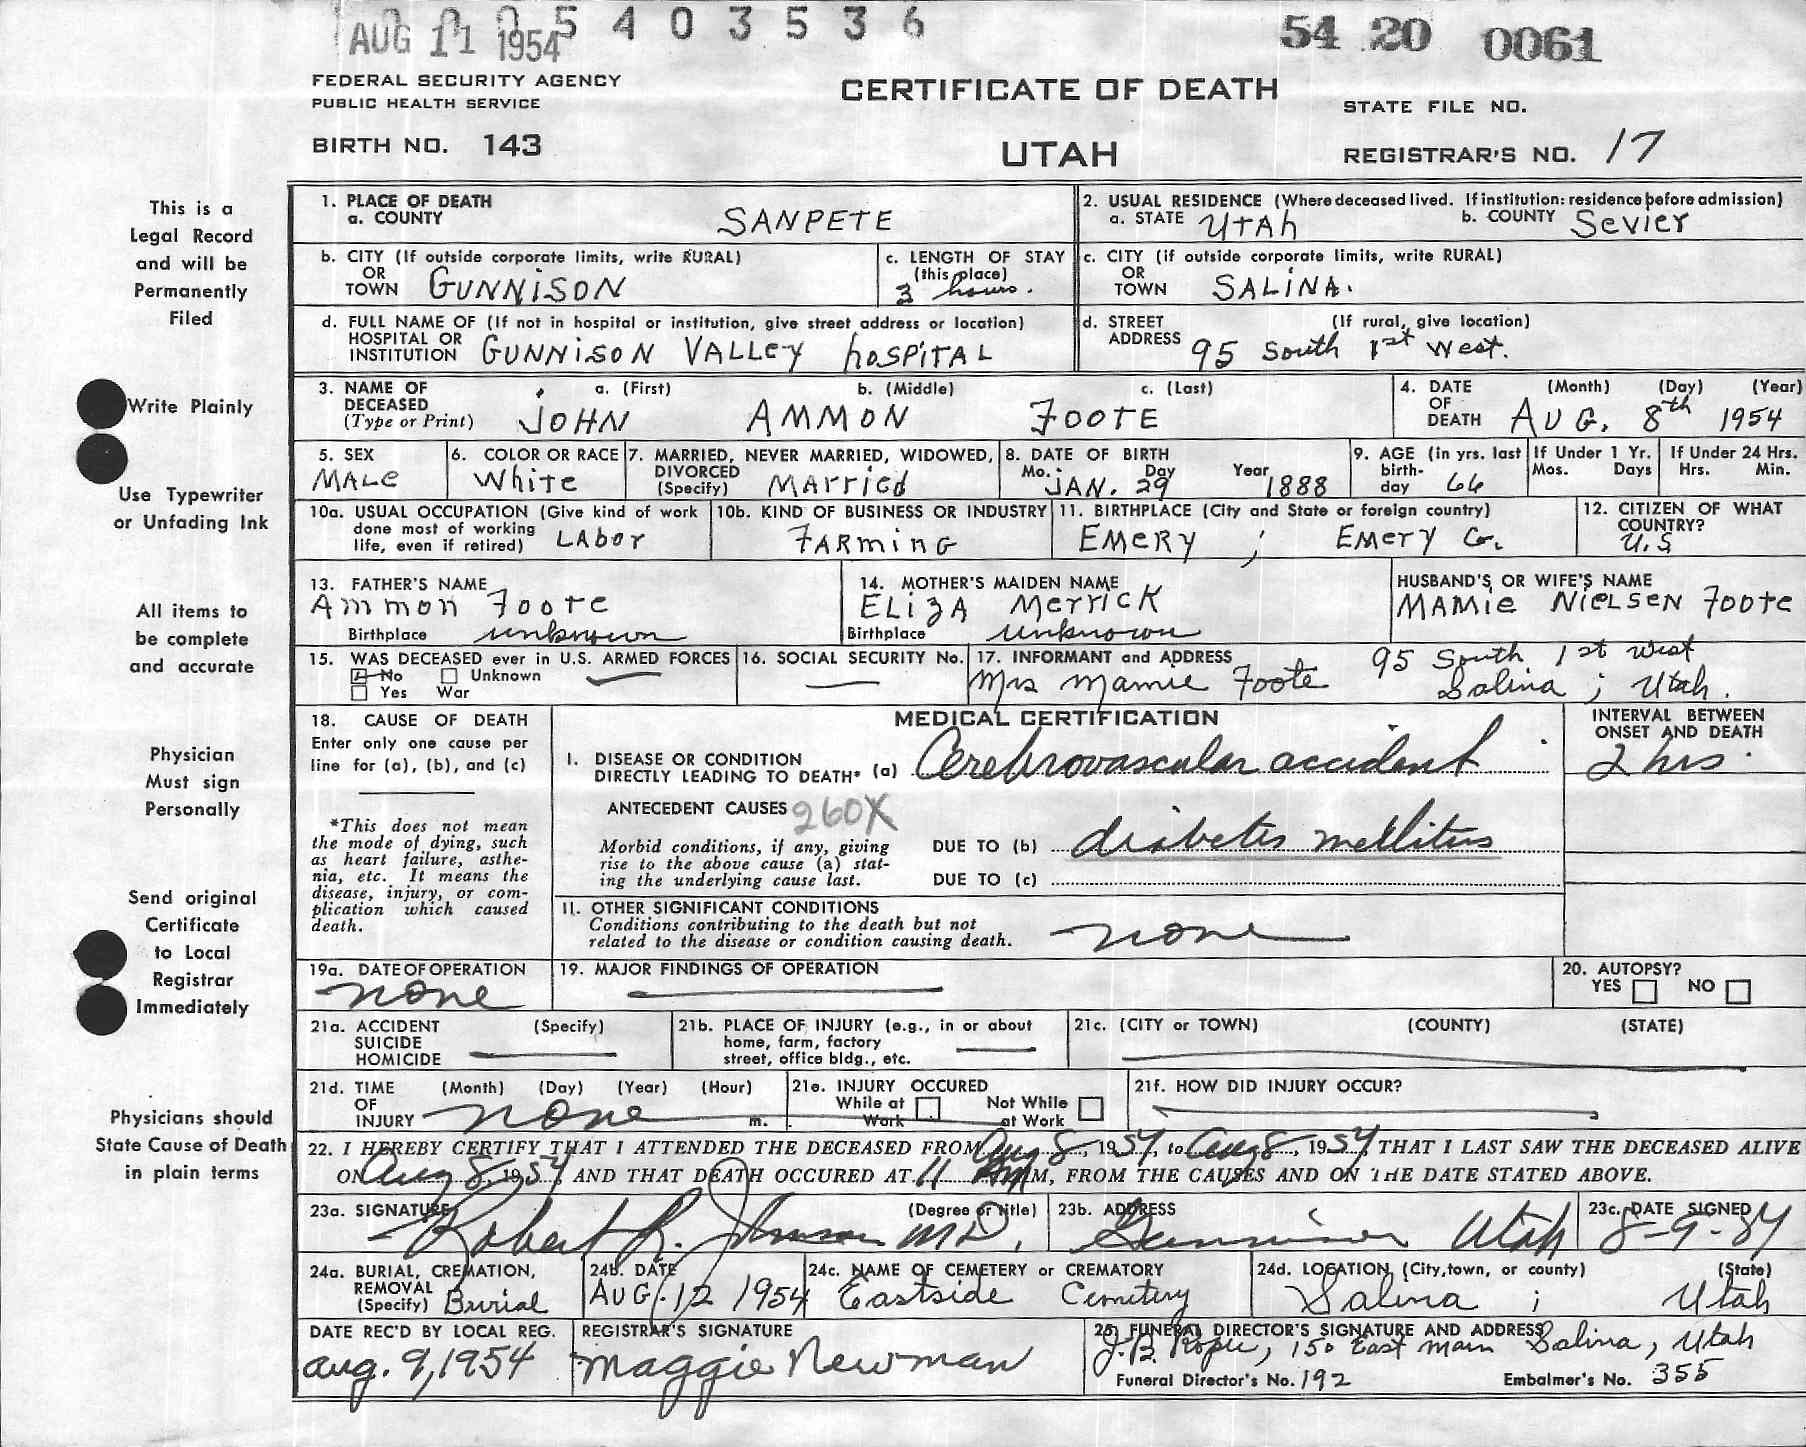 AUG 11 1954
5 4 0 3 5 3 6
54 20 0061
FEDERAL SECURITY AGENCY
PUBLIC HEALTH SERVICE
CERTIFICATE OF DEATH
STATE FILE NO.
BIRTH NO. 143
UTAH
REGISTRAR'S NO. 17
This is a
Legal Record
and will be
Permanently
Filed
Write Plainly
Use Typewriter
or Unfading Ink
All items to
be complete
and accurate
Physician
Must sign
Personally
Send original
Certificate
to Local
Registrar
Immediately
Physicians should
State Cause of Death
in plain terms
1. PLACE OF DEATH
a. COUNTY SANPETE
2. USUAL RESIDENCE (Where deceased lived. If institution: residence before admission)
a. STATE UTAh b. COUNTY Sevier
b. CITY (If outside corporate limits, write RURAL)
OR
TOWN GUNNiSON
c. LENGTH OF STAY
(this place)
3 hours.
c. CITY (if outside corporate limits, write RURAL)
OR
TOWN SALiNA.
d. FULL NAME OF (If not in hospital or institution, give street address or location)
HOSPITAL OR
INSTITUTION GUNNiSON VALLey hoSPiTAL
d. STREET (If rural, give location)
ADDRESS 95 South 1st West.
3. NAME OF a. (First) b. (Middle) c. (Last)
DECEASED
(Type or Print) JOHN AMMON FOOTE
4. DATE (Month) (Day) (Year)
OF
DEATH AUG. 8th 1954
5. SEX
MALe
6. COLOR OR RACE
White
7. MARRIED, NEVER MARRIED, WIDOWED,
DIVORCED
(Specify) MArried
8. DATE OF BIRTH
Mo. Day Year
JAN. 29 1888
9. AGE (in yrs. last
birth-
day 66
If Under 1 Yr.
Mos. Days
If Under 24 Hrs.
Hrs. Min.
10a. USUAL OCCUPATION (Give kind of work
done most of working
life, even if retired) LAbor
10b. KIND OF BUSINESS OR INDUSTRY
FARming
11. BIRTHPLACE (City and State or foreign country)
EMERY ; EmEry Co.
12. CITIZEN OF WHAT
COUNTRY?
U.S
13. FATHER'S NAME
Ammon Foote
Birthplace unknown
14. MOTHER'S MAIDEN NAME
ELiZA MerricK
Birthplace unknown
HUSBAND'S OR WIFE'S NAME
MAMie NieLSEN Foote
15. WAS DECEASED ever in U.S. ARMED FORCES
No Unknown
Yes War
16. SOCIAL SECURITY No.
17. INFORMANT and ADDRESS 95 South 1st west
Mrs Mamie Foote Salina ; Utah.
18. CAUSE OF DEATH
Enter only one cause per
line for (a), (b), and (c)
*This does not mean
the mode of dying, such
as heart failure, asthe-
nia, etc. It means the
disease, injury, or com-
plication which caused
death.
MEDICAL CERTIFICATION
INTERVAL BETWEEN
ONSET AND DEATH
I. DISEASE OR CONDITION
DIRECTLY LEADING TO DEATH* (a) Cerebrovascular accident
2 hrs.
ANTECEDENT CAUSES 260X
Morbid conditions, if any, giving
rise to the above cause (a) stat-
ing the underlying cause last.
DUE TO (b) diabetis mellitus
DUE TO (c)
11. OTHER SIGNIFICANT CONDITIONS
Conditions contributing to the death but not
related to the disease or condition causing death. none
19a. DATE OF OPERATION
none
19. MAJOR FINDINGS OF OPERATION
20. AUTOPSY?
YES NO
21a. ACCIDENT (Specify)
SUICIDE
HOMICIDE
21b. PLACE OF INJURY (e.g., in or about
home, farm, factory
street, office bldg., etc.
21c. (CITY or TOWN) (COUNTY) (STATE)
21d. TIME (Month) (Day) (Year) (Hour)
OF
INJURY none m.
21e. INJURY OCCURED
While at Not While
Work at Work
21f. HOW DID INJURY OCCUR?
22. I HEREBY CERTIFY THAT I ATTENDED THE DECEASED FROM Aug 8, 1954, to Aug 8, 1954, THAT I LAST SAW THE DECEASED ALIVE
ON Aug 8, 1954, AND THAT DEATH OCCURED AT 11 M, FROM THE CAUSES AND ON THE DATE STATED ABOVE.
23a. SIGNATURE (Degree or title)
Robert R. Johnson MD.
23b. ADDRESS
Gunnison Utah
23c. DATE SIGNED
8-9-54
24a. BURIAL, CREMATION,
REMOVAL
(Specify) Burial
24b. DATE
AUG. 12 1954
24c. NAME OF CEMETERY or CREMATORY
Eastside Cemetery
24d. LOCATION (City, town, or county) (State)
Salina ; Utah
DATE REC'D BY LOCAL REG.
aug. 9, 1954
REGISTRAR'S SIGNATURE
Maggie Newman
25. FUNERAL DIRECTOR'S SIGNATURE AND ADDRESS Salina, Utah
J.B. 150 East Main
Funeral Director's No. 192 Embalmer's No. 355